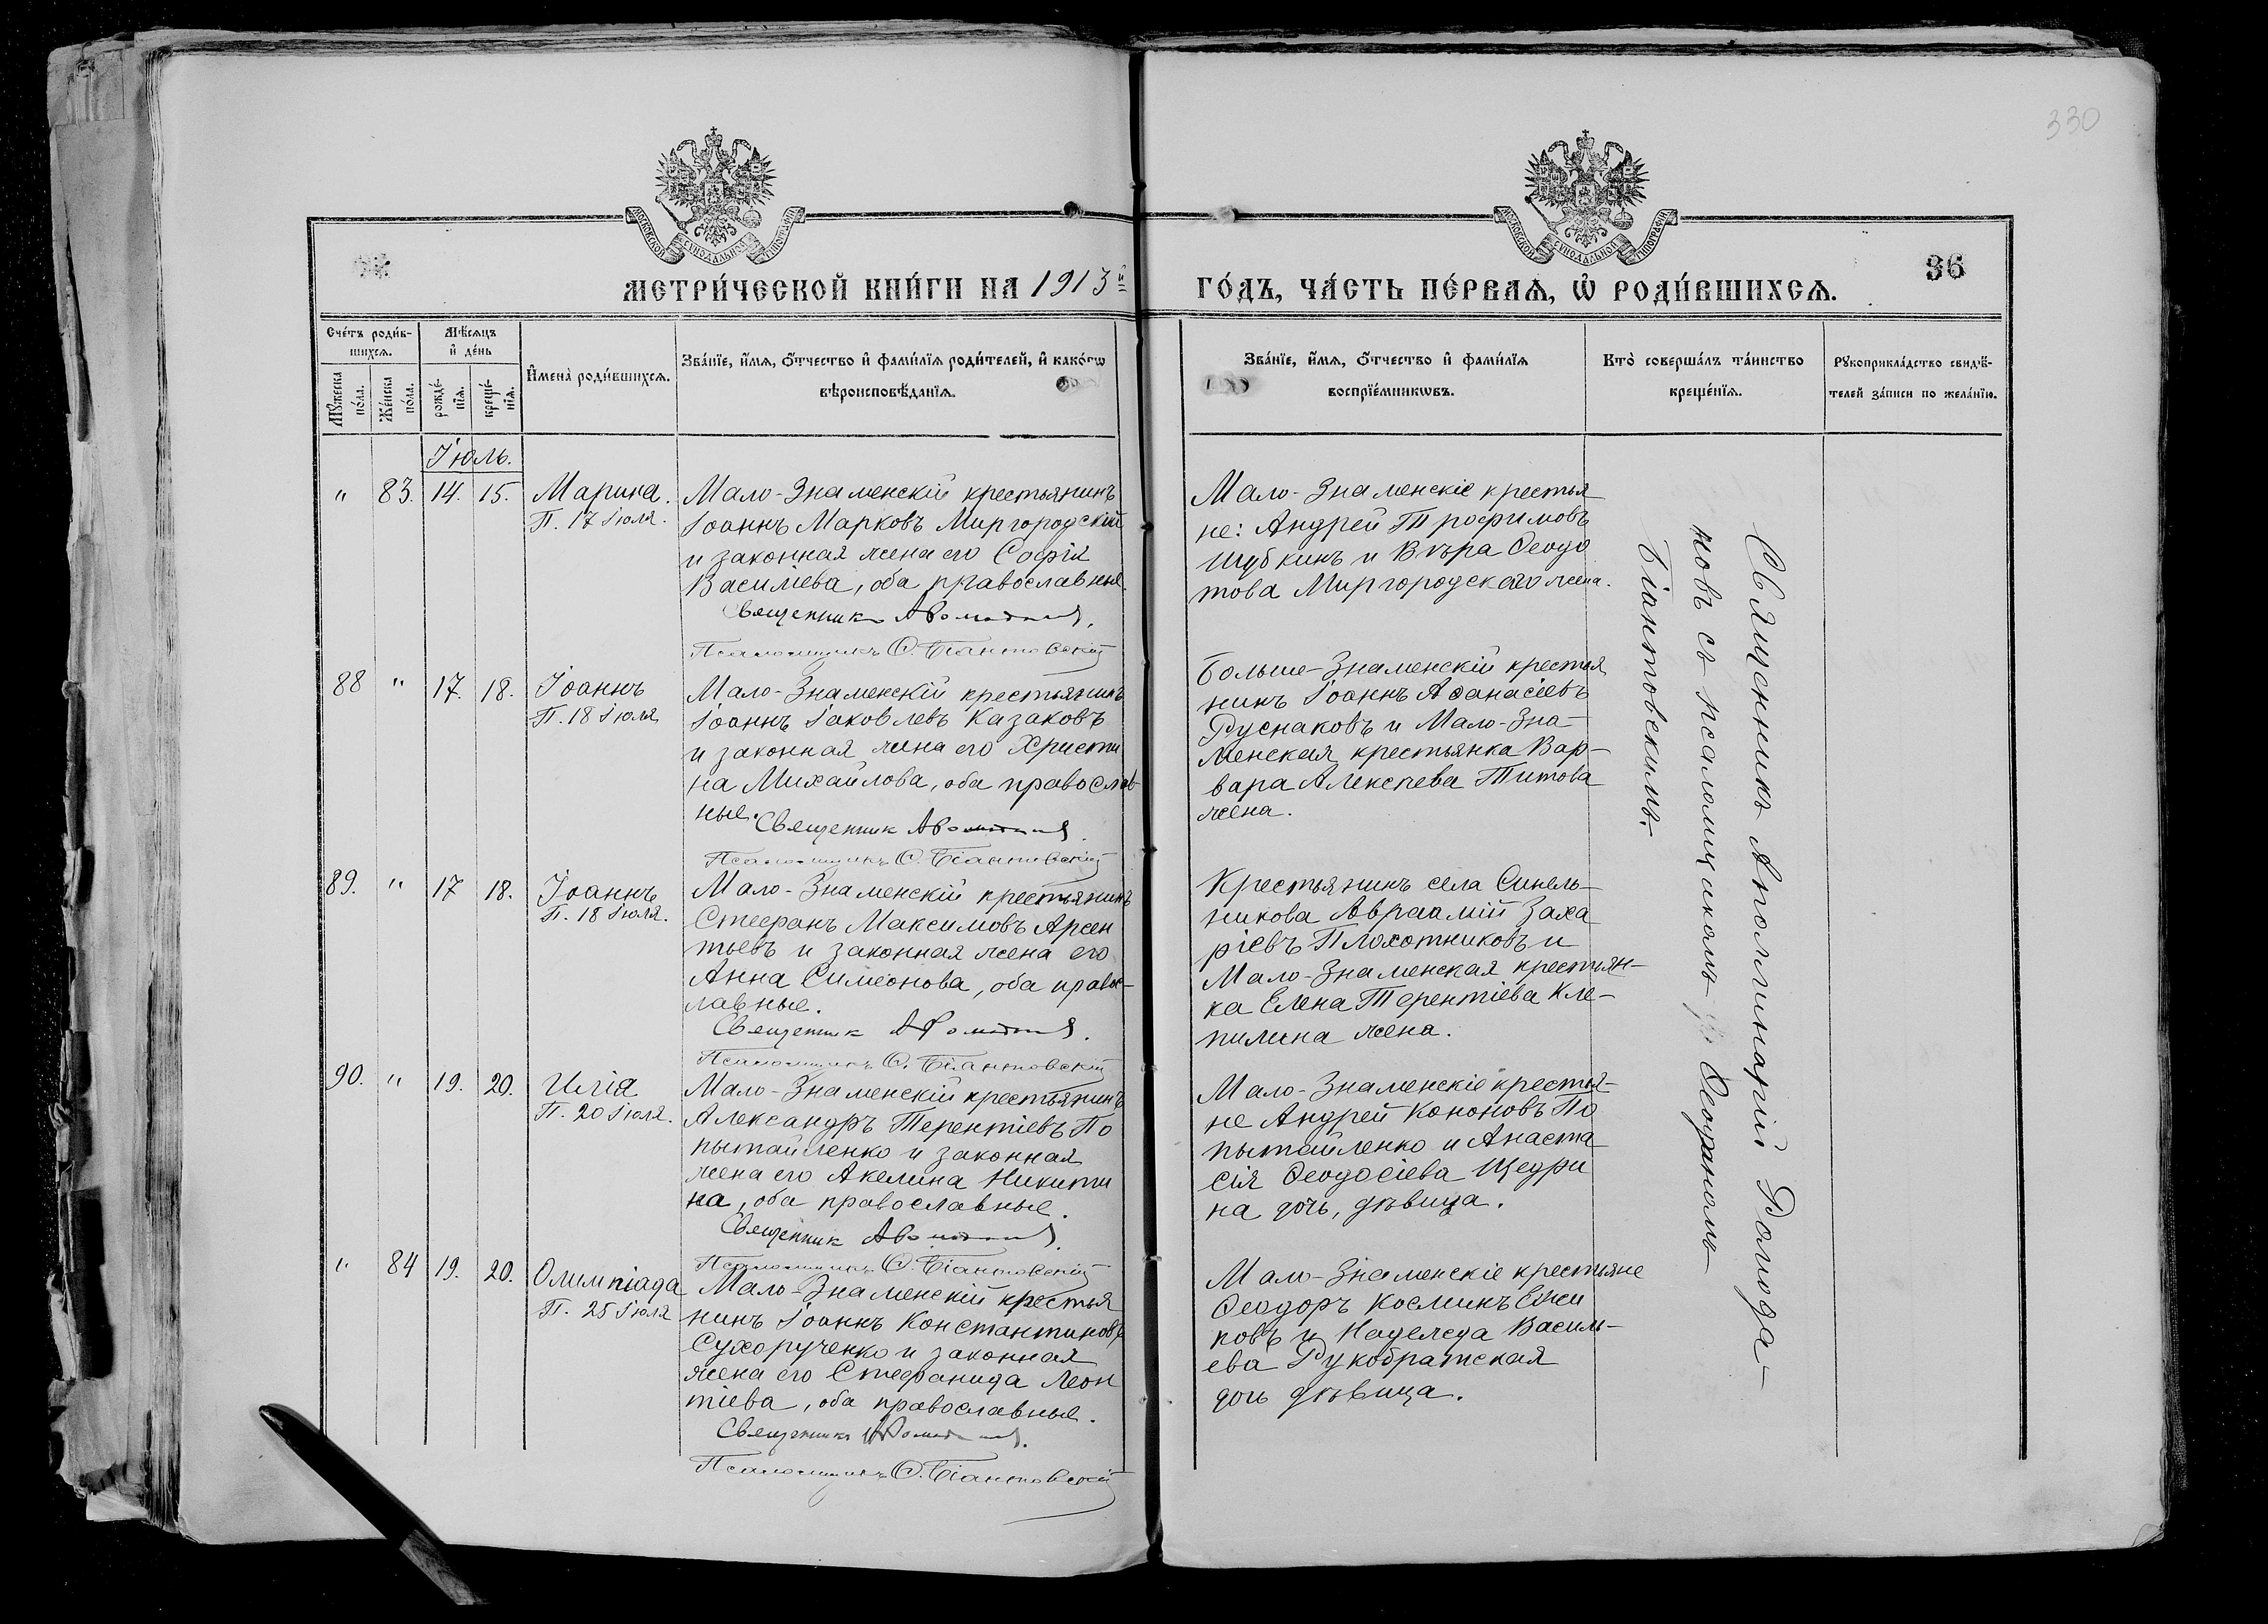 330
МОСКОВСКОЙ СУНОДАЛЬНОЙ ТИПОГРАФІИ
МОСКОВСКОЙ СУНОДАЛЬНОЙ ТИПОГРАФІИ
36
МЕТРИ́ЧЕСКОЙ КНИ́ГИ НА 1913й
ГО́ДЪ, ЧА́СТЬ ПЕ́РВАѦ, Ѽ РОДИ́ВШИХСѦ.
Сче́тъ роди́в-
шихсѧ.
Мꙋ́жеска
по́ла.
Же́нска
по́ла.
Мѣ́сѧцъ
и҆ де́нь
рожде́-
нїѧ.
креще́-
нїѧ.
И҆мена̀ роди́вшихсѧ.
Зва́нїе, и҆́мѧ, ѻ҆́тчество и҆ фами́лїѧ роди́телей, и҆ како́гѡ
вѣроисповѣ́данїѧ.
Зва́нїе, и҆́мѧ, ѻ҆́тчество и҆ фами́лїѧ
воспрїе́мникѡвъ.
Кто̀ соверша́лъ та́инство
креще́нїѧ.
Рꙋкоприкла́дство свидѣ́-
телей за́писи по жела́нїю.
Іюль.
" 83. 14. 15. Марина.
П. 17 Іюля.
Мало-Знаменскій крестьянинъ
Іоаннъ Марковъ Миргородскій
и законная жена его Софія
Василіева, оба православные.
Священникъ
Псаломщикъ Ѳ. Біантовскій
Мало-Знаменскіе крестья
не: Андрей Трофимовъ
Шубкинъ и Вѣра Ѳеодо
това Миргородскаго жена.
88 " 17. 18. Іоаннъ
П. 18 Іюля
Мало-Знаменскій крестьянинъ
Іоаннъ Іаковлевъ Казаковъ
и законная жена его Христи
на Михайлова, оба православ
ные.
Священник
Псаломщикъ Ѳ. Біантовскій
Больше-Знаменскій крестья
нинъ Іоаннъ Аѳанасіевъ
Руснаковъ и Мало-Зна-
менская крестьянка Вар-
вара Алексѣева Титова
жена.
89. " 17 18. Іоаннъ
П. 18 Іюля.
Мало-Знаменскій крестьянинъ
Стефанъ Максимовъ Арсен
тьевъ и законная жена его
Анна Симеонова, оба право-
лавные.
Священник
Псаломщикъ Ѳ. Біантовскій
Крестьянинъ села Синель-
никова Авраамій Заха
ріевъ Плохотниковъ и
Мало-Знаменская крестьян-
ка Елена Терентіева Кле-
пилина жена.
90. " 19. 20. Илія
П. 20 Іюля.
Мало-Знаменскій крестьянинъ
Александръ Терентіевъ По
пытайленко и законная
жена его Акелина Никити
на, оба православные.
Священник
Псаломщикъ Ѳ. Біантовскій
Мало-Знаменскіе крестья-
не Андрей Кононовъ По
пытайленко и Анаста
сія Ѳеодосіева Щедри
на дочь, дѣвица.
" 84 19. 20. Олимпіада
П. 25 Іюля
Мало-Знаменскій крестья
нинъ Іоаннъ Константиновъ
Сухорученко и законная
жена его Стефанида Леон
тіева, оба православные.
Священникъ
Псаломщикъ Ѳ. Біантовскій
Мало-Знаменскіе крестьяне
Ѳеодоръ Косминъ
ковъ и Надежда Василь-
ева Рукобратская
дочь дѣвица.
Священникъ Аполлинарій Ромода-
новъ съ псаломщикомъ Ѳеофаномъ
Біантовскимъ.